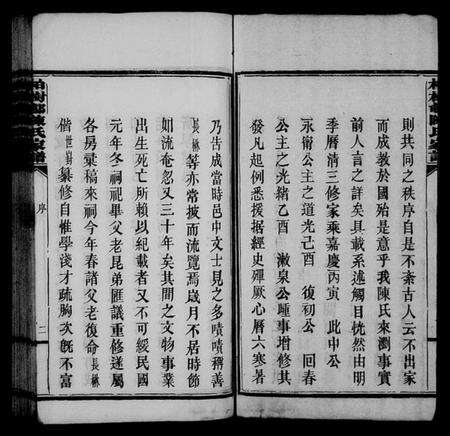 則共同之秩序自是不紊古人云不出家
而成教於國殆是意乎我陳氏來瀏事實
前人言之詳矣具載系述觸目恍然由明
季曆清三修家乘嘉慶丙寅 此中公
永衛公主之道光己酉 復初公 回春
公主之光緒乙酉 漱泉公踵事增修其
發凡起例悉援據經史殫厥心曆六寒暑
乃告成當時邑中文士見之多嘖嘖稱善
長 等亦常披而流覽焉歲月不居時節
如流奄忽又三十年矣其間之文物事業
出生死亡所賴以紀載者又不可綏民國
元年冬祠祀畢父老昆弟匯議重修遂屬
各房彙稿來祠今年春諸父老復命長
偕世 彙修自惟學淺才疏胸次既不富
陳氏家譜
序
二